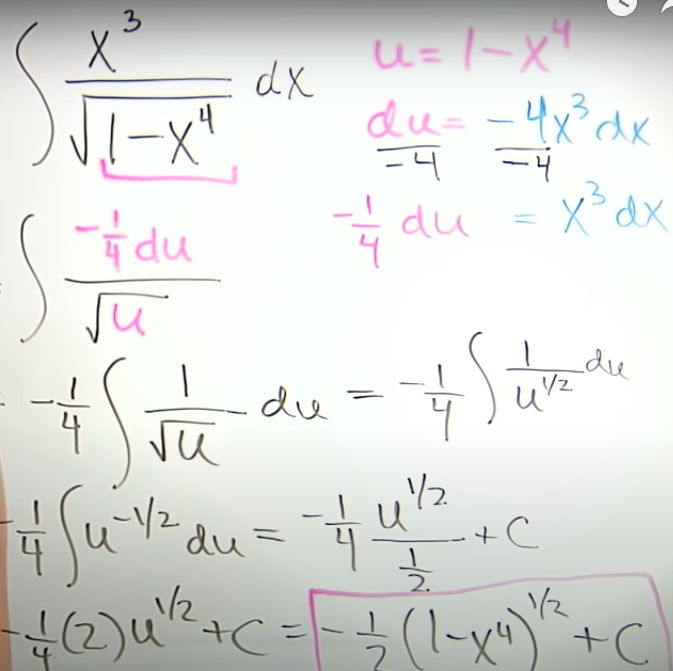 ∫ x³/√(1-x⁴) dx
u = 1-x⁴
du/-4 = -4x³dx/-4
-1/4 du = x³dx
∫ -1/4 du/√u
-1/4 ∫ 1/√u du = -1/4 ∫ 1/u^1/2 du
-1/4 ∫ u^-1/2 du = -1/4 u^1/2/(1/2) + C
-1/4 (2) u^1/2 + C = -1/2 (1-x⁴)^1/2 + C